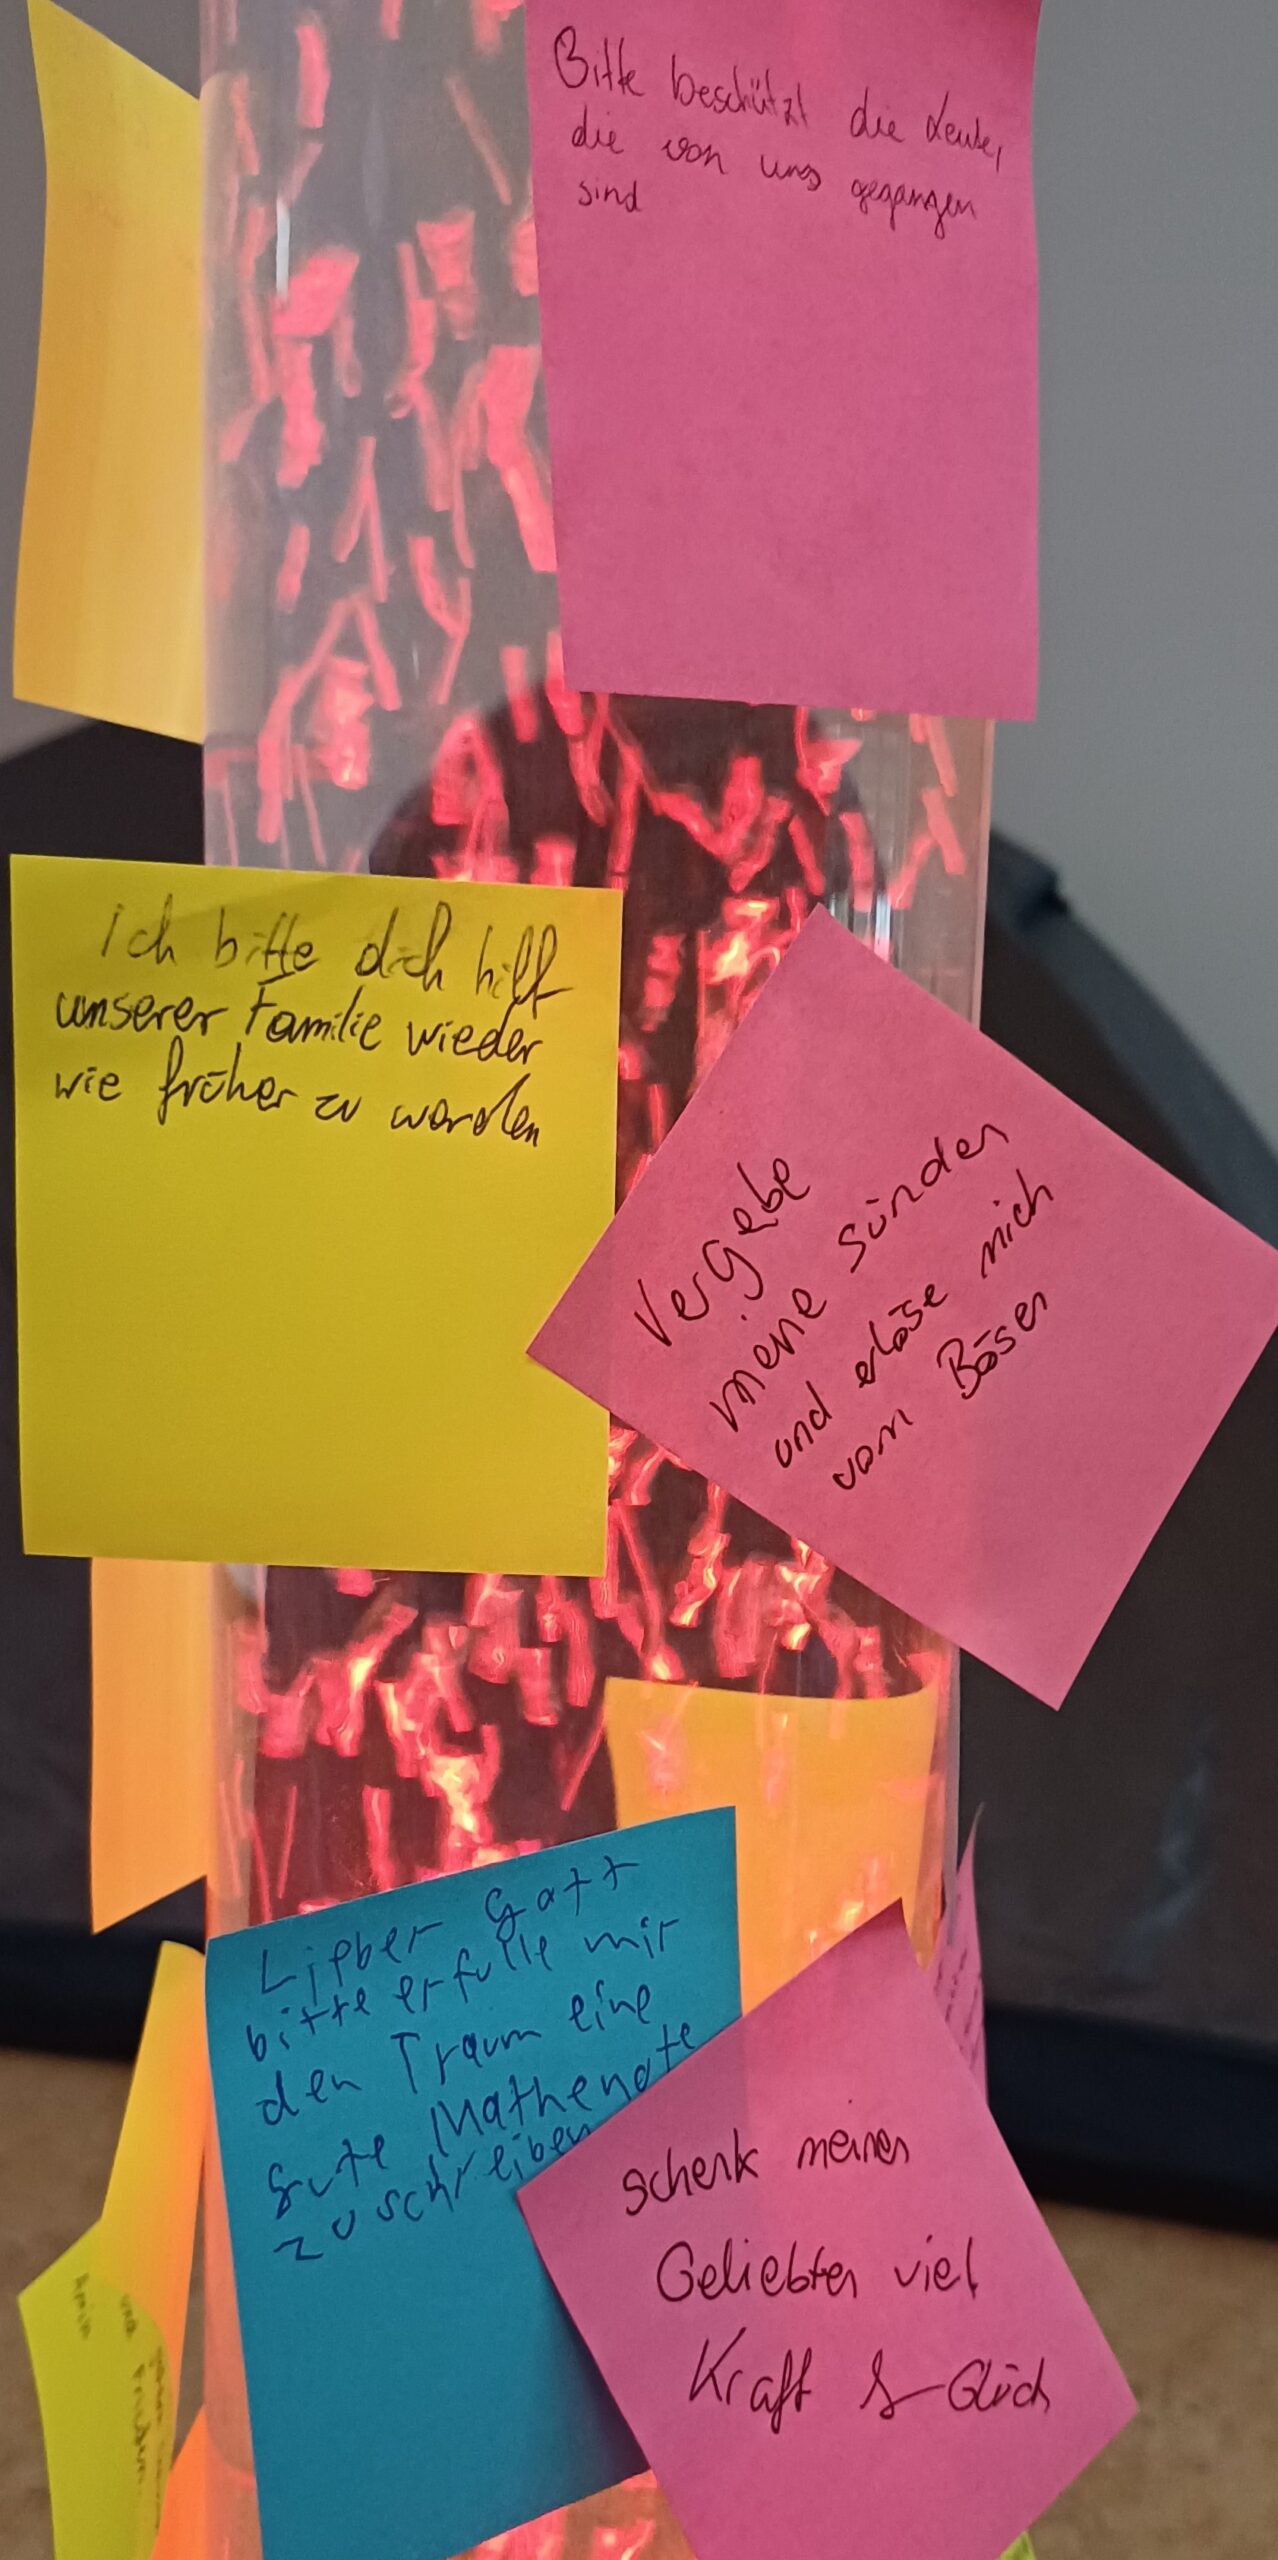 Bitte beschützt die Leute,
die von uns gegangen
sind
ich bitte dich hilf
unserer Familie wieder
wie früher zu werden
Vergebe
meine sünden
und erlöse mich
vom Bösen
Lieber Gott
bitte erfulle mir
den Traum eine
gute Mathenote
zu schreiben
schenk meinen
Geliebten viel
Kraft & Glück